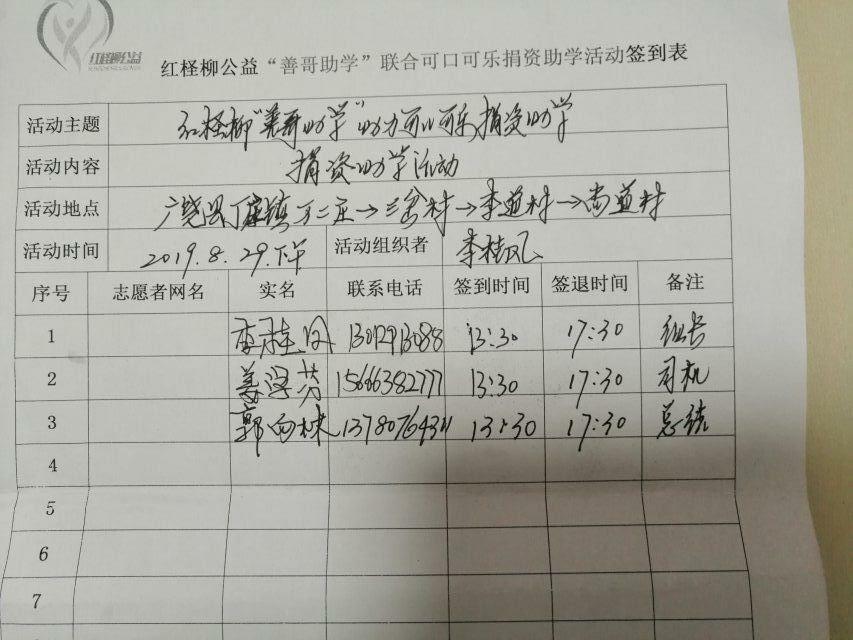 红柽柳公益
红柽柳公益“善哥助学”联合可口可乐捐资助学活动签到表
活动主题 红柽柳“善哥助学”助力可口可乐捐资助学
活动内容 捐资助学活动
活动地点 广饶县丁庄镇 万二庄→三岔村→李道村→尚道村
活动时间 2019.8.29.下午 活动组织者 李桂凤
序号 志愿者网名 实名 联系电话 签到时间 签退时间 备注
1 李桂凤 13:30 17:30 组长
2 姜学芬 15666382777 13:30 17:30 司机
3 郭向林 13:30 17:30 总结
4
5
6
7